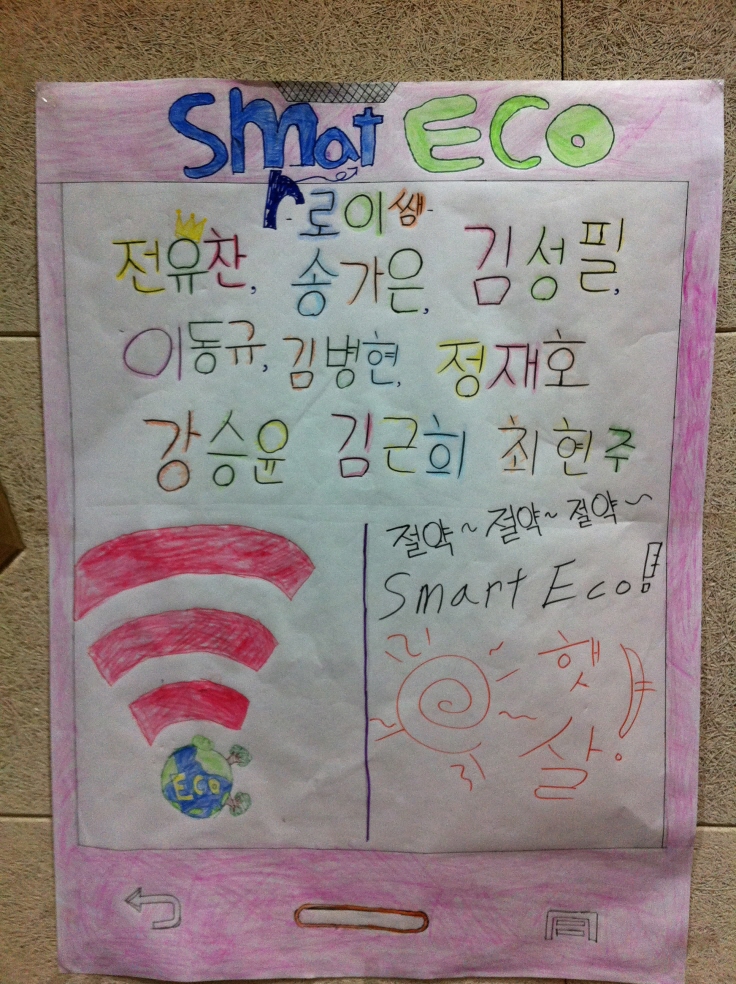 Smat ECO
r
-로이쌤-
전유찬, 송가은, 김성필,
이동규, 김병현, 정재호
강승윤 김근희 최현주
절약~절약~절약~
Smart Eco!
햇
살
ECO